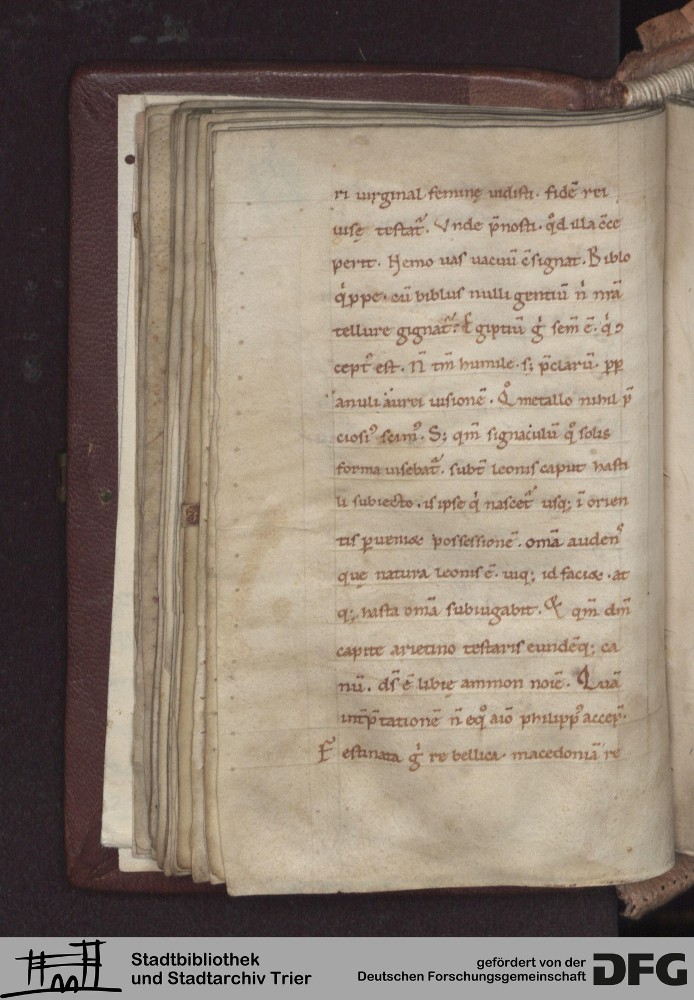 ri uirginal feminę uidisti. fidē rei
uisę testat᷑. Vnde p̄nosti. qd̄ illa c̄ce
perit. Nemo uas vacuū c̄signat. Biblo
q̍ppe. cū biblus nulli gentiū n̄ nr̄a
tellure gignat᷑. Egiptiū g̍ sem̄ ē. q̍ ɔ
cept᷒ est. N̄ tm̄ humile. s; p̄clarū. ꝓp
anuli aurei uisionē. Qͦ metallo nihil p̄
ciosi᷒ scim᷒. S; qm̄ signaculū qͦ solis
forma uisebat᷑. subt̄ leonis caput hasti
li subiecto. is ipse q̍ nascet᷑ usq; ī orien
tis ꝑueniæ possessionē. om̄a auden᷒
quę natura leonis ē. uiq; id faciæ. at
q; hasta om̄a subiugabit. & qm̄ dm̄
capite arietino testaris eundēq; ca
nū. ds̄ ē libię ammon noīe. Quā
int̄p̄tationē n̄ eqͦ aīo philipp᷒ accep̄.
Festinata g̍ re bellica. macedoniā re
Stadtbibliothek
und Stadtarchiv Trier
gefördert von der
Deutschen Forschungsgemeinschaft
DFG